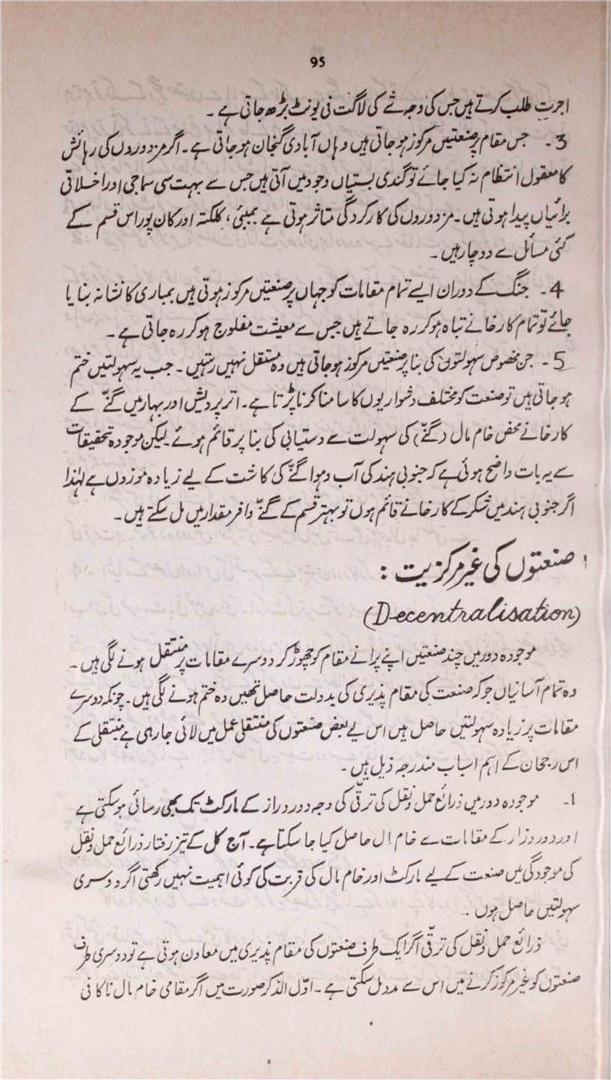 95
اجرت طلب کرتے ہیں جس کی وجہ شے کی لاگت فی یونٹ بڑھ جاتی ہے۔
3۔ جس مقام پر صنعتیں مرکوز ہو جاتی ہیں وہاں آبادی گنجان ہو جاتی ہے۔ اگر مزدوروں کی رہائش
کا معقول انتظام نہ کیا جائے تو گندی بستیاں وجود میں آتی ہیں جس سے بہت سی سماجی اور اخلاقی
برائیاں پیدا ہوتی ہیں۔ مزدوروں کی کارکردگی متاثر ہوتی ہے بمبئی، کلکتہ اور کان پور اس قسم کے
کئی مسائل سے دوچار ہیں۔
4۔ جنگ کے دوران ایسے تمام مقامات کو جہاں پر صنعتیں مرکوز ہوتی ہیں بمباری کا نشانہ بنایا
جائے تو تمام کارخانے تباہ ہو کر رہ جاتے ہیں جس سے معیشت مفلوج ہو کر رہ جاتی ہے۔
5۔ جن مخصوص سہولتوں کی بنا پر صنعتیں مرکوز ہو جاتی ہیں وہ مستقل نہیں رہتیں۔ جب یہ سہولتیں ختم
ہو جاتی ہیں تو صنعت کو مختلف دشواریوں کا سامنا کرنا پڑتا ہے۔ اتر پردیش اور بہار میں گنّے کے
کارخانے محض خام مال (گنّے) کی سہولت سے دستیابی کی بنا پر قائم ہوئے۔ لیکن موجودہ تحقیقات
سے یہ بات واضح ہوئی ہے کہ جنوبی ہند کی آب و ہوا گنّے کی کاشت کے لیے زیادہ موزوں ہے لہٰذا
اگر جنوبی ہند میں شکر کے کارخانے قائم ہوں تو بہتر قسم کے گنّے وافر مقدار میں مل سکتے ہیں۔
صنعتوں کی غیر مرکزیت :
(Decentralisation)
موجودہ دور میں چند صنعتیں اپنے پرانے مقام کو چھوڑ کر دوسرے مقامات پر منتقل ہونے لگی ہیں۔
وہ تمام آسانیاں جو کہ صنعت کی مقام پذیری کی بدولت حاصل تھیں وہ ختم ہونے لگی ہیں۔ چونکہ دوسرے
مقامات پر زیادہ سہولتیں حاصل ہیں اس لیے بعض صنعتوں کی منتقلی عمل میں لائی جا رہی ہے منتقلی کے
اس رجحان کے اہم اسباب مندرجہ ذیل ہیں۔
1۔ موجودہ دور میں ذرائع حمل و نقل کی ترقّی کی وجہ دور دراز کے مارکٹ تک بھی رسائی ہو سکتی ہے
اور دور دراز کے مقامات سے خام مال حاصل کیا جا سکتا ہے۔ آج کل کے تیز رفتار ذرائع حمل و نقل
کی موجودگی میں صنعت کے لیے مارکٹ اور خام مال کی قربت کی کوئی اہمیت نہیں رکھتی اگر دوسری
سہولتیں حاصل ہوں۔
ذرائع حمل و نقل کی ترقّی اگر ایک طرف صنعتوں کی مقام پذیری میں معاون ہوتی ہے تو دوسری طرف
صنعتوں کو غیر مرکوز کرنے میں اس سے مدد مل سکتی ہے۔ اوّل الذکر صورت میں اگر مقامی خام مال ناکافی